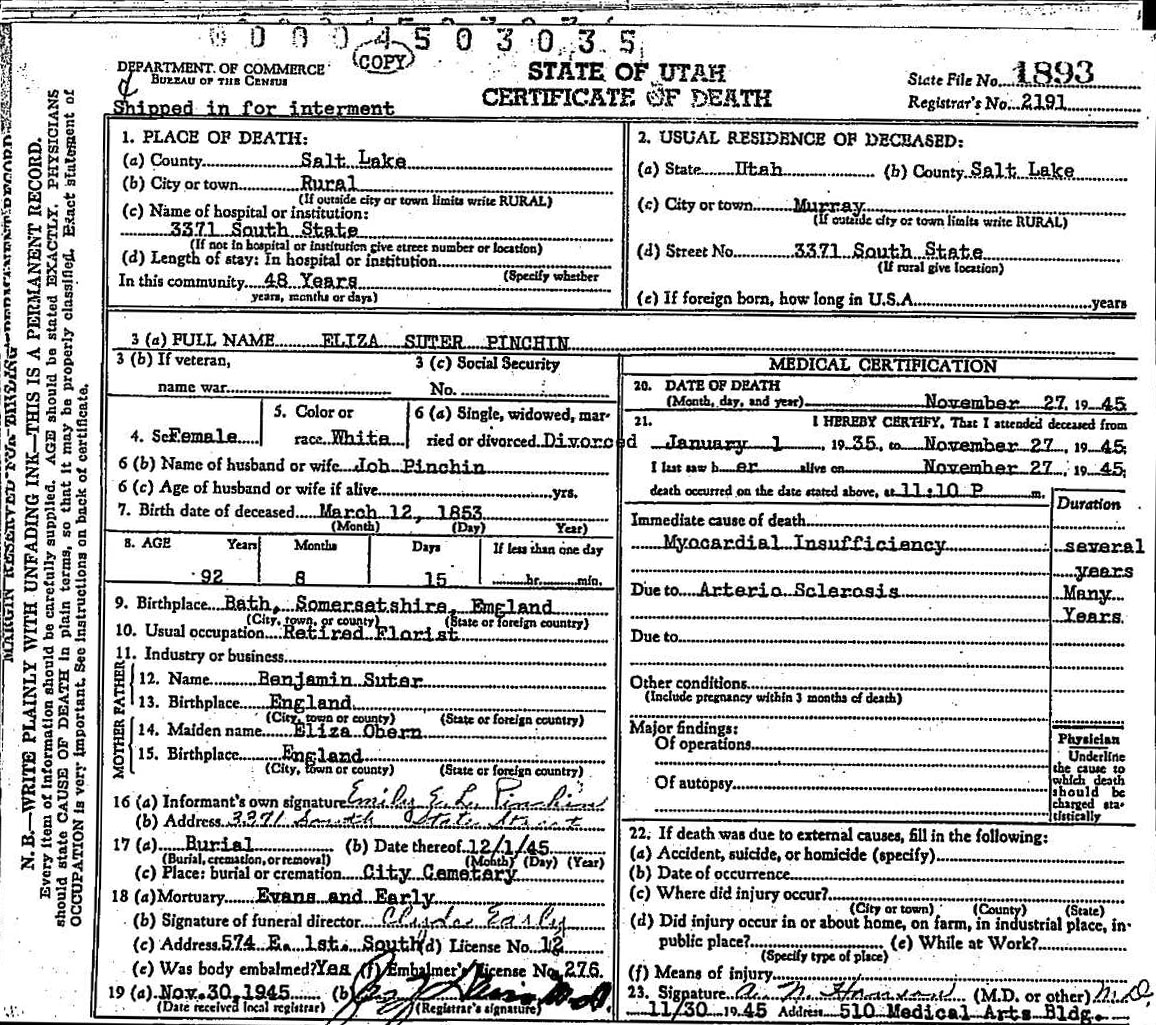 0 0 0 0 4 5 0 3 0 3 5
COPY
DEPARTMENT OF COMMERCE
BUREAU OF THE CENSUS
STATE OF UTAH
CERTIFICATE OF DEATH
State File No. 1893
Registrar's No. 2191
Shipped in for interment
MARGIN RESERVED FOR BINDING
N. B.—WRITE PLAINLY WITH UNFADING INK—THIS IS A PERMANENT RECORD.
Every item of information should be carefully supplied. AGE should be stated EXACTLY. PHYSICIANS
should state CAUSE OF DEATH in plain terms, so that it may be properly classified. Exact statement of
OCCUPATION is very important. See instructions on back of certificate.
1. PLACE OF DEATH:
(a) County Salt Lake
(b) City or town Rural
(If outside city or town limits write RURAL)
(c) Name of hospital or institution:
3371 South State
(If not in hospital or institution give street number or location)
(d) Length of stay: In hospital or institution
(Specify whether
In this community 48 Years
years, months or days)
2. USUAL RESIDENCE OF DECEASED:
(a) State Utah (b) County Salt Lake
(c) City or town Murray
(If outside city or town limits write RURAL)
(d) Street No. 3371 South State
(If rural give location)
(e) If foreign born, how long in U.S.A. years
3 (a) FULL NAME ELIZA SUTER PINCHIN
3 (b) If veteran,
name war
3 (c) Social Security
No.
4. Sex Female
5. Color or
race White
6 (a) Single, widowed, mar-
ried or divorced Divorced
6 (b) Name of husband or wife Job Pinchin
6 (c) Age of husband or wife if alive yrs.
7. Birth date of deceased March 12, 1853
(Month) (Day) Year)
8. AGE Years Months Days If less than one day
92 8 15 hr. min.
9. Birthplace Bath, Somersetshire, England
(City, town, or county) (State or foreign country)
10. Usual occupation Retired Florist
11. Industry or business
FATHER
12. Name Benjamin Suter
13. Birthplace England
(City, town or county) (State or foreign country)
MOTHER
14. Maiden name Eliza Obern
15. Birthplace England
(City, town or county) (State or foreign country)
16 (a) Informant's own signature Emily E. L. Pinchin
(b) Address 3371 South State Street
17 (a) Burial (b) Date thereof 12/1/45
(Burial, cremation, or removal) (Month) (Day) (Year)
(c) Place: burial or cremation City Cemetery
18 (a) Mortuary Evans and Early
(b) Signature of funeral director Clyde Early
(c) Address 574 E. 1st. South (d) License No. 12
(e) Was body embalmed? Yes (f) Embalmer's License No. 276
19 (a) Nov. 30, 1945 (b)
(Date received local registrar) (Registrar's signature)
MEDICAL CERTIFICATION
20. DATE OF DEATH
(Month, day, and year) November 27, 1945
21. I HEREBY CERTIFY, That I attended deceased from
January 1 1935, to November 27, 1945;
I last saw her alive on November 27, 1945;
death occurred on the date stated above, at 11:10 P m.
Duration
Immediate cause of death
Myocardial Insufficiency several
years
Due to Arterio Sclerosis Many
Years
Due to
Other conditions
(Include pregnancy within 3 months of death)
Major findings:
Of operations
Of autopsy
Physician
Underline
the cause to
which death
should be
charged sta-
tistically
22. If death was due to external causes, fill in the following:
(a) Accident, suicide, or homicide (specify)
(b) Date of occurrence
(c) Where did injury occur?
(City or town) (County) (State)
(d) Did injury occur in or about home, on farm, in industrial place, in-
public place? (e) While at Work?
(Specify type of place)
(f) Means of injury
23. Signature (M.D. or other) M.D.
11/30 1945 Address 510 Medical Arts Bldg.